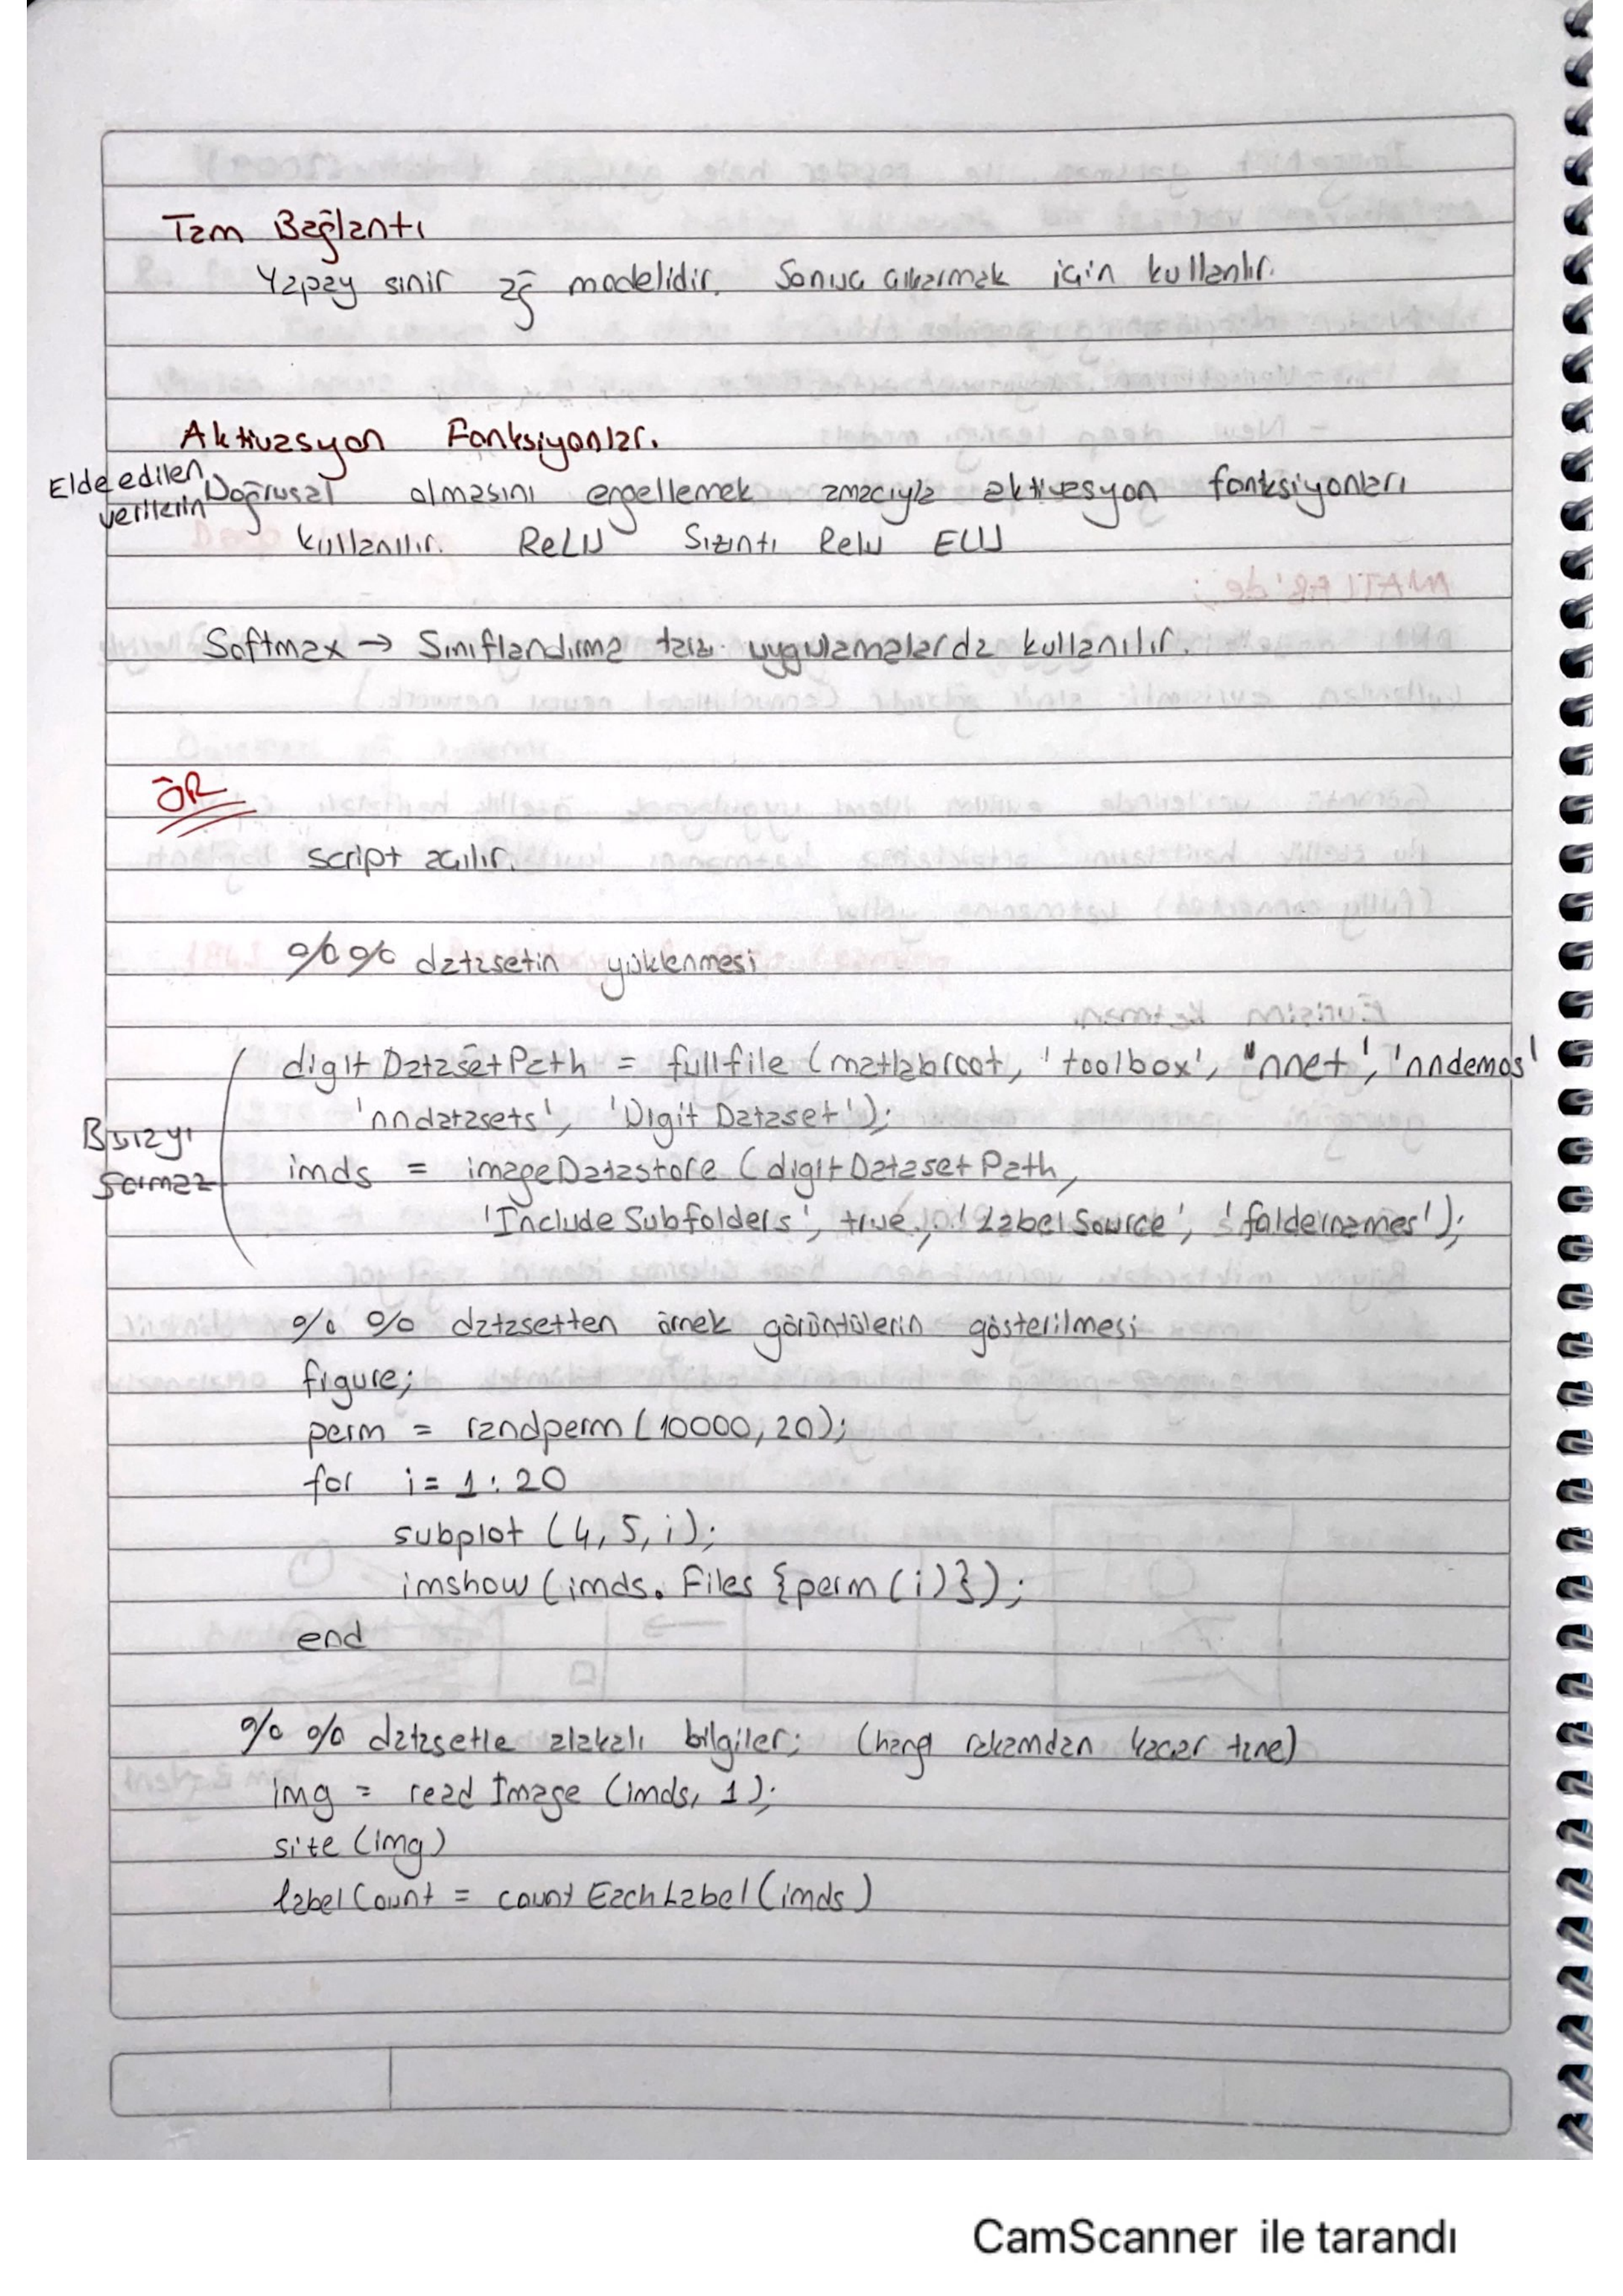 Tam Bağlantı
Yapay sinir ağ modelidir. Sonuç çıkarmak için kullanlır.
Aktivasyon Fonksiyonlar.
Elde edilen verilerin Doğrusal olmasını engellemek amacıyla aktivasyon fonksiyonları
kullanılır. ReLU Sızıntı Relu ELU
Softmax → Sınıflandırma tarzı uygulamalarda kullanılır.
ÖR
script açılır.
%% datasetin yüklenmesi
digitDatasetPath = fullfile (matlabroot, 'toolbox', "nnet', 'nndemos'
'nndatasets', 'DigitDataset');
Burayı
sormaz
imds = imageDatastore (digitDatasetPath,
'IncludeSubfolders', true, 'LabelSource', 'foldernames');
%% datasetten örnek görüntülerin gösterilmesi
figure;
perm = randperm (10000, 20);
for i = 1 : 20
subplot (4, 5, i);
imshow (imds. Files {perm (i)});
end
%% datasetle alakalı bilgiler; (hangi rakamdan kaçar tane)
img = readImage (imds, 1);
size (img)
labelCount = countEachLabel (imds)
CamScanner ile tarandı